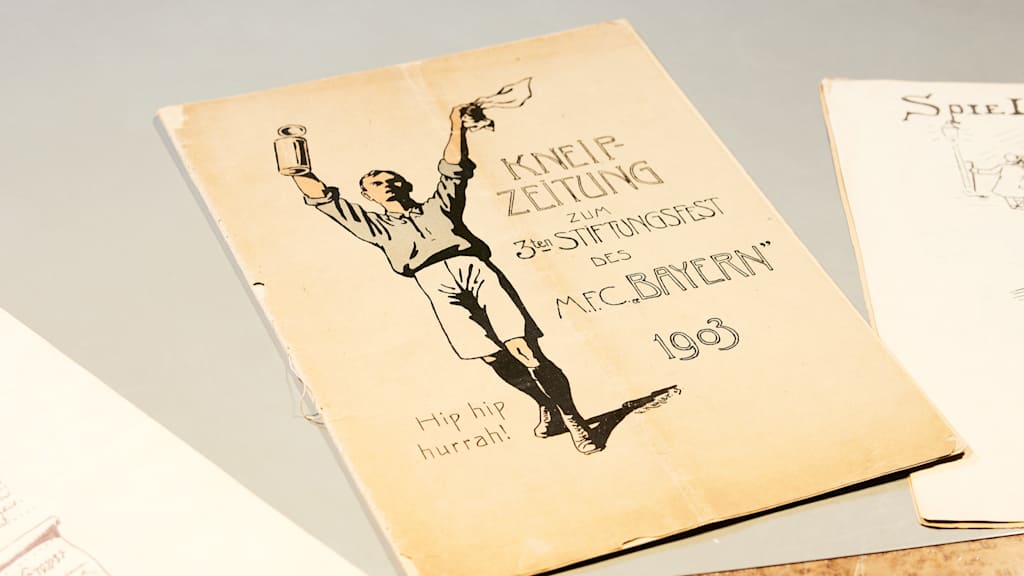 KNEIP-
ZEITUNG
ZUM
3ten STIFTUNGSFEST
DES
M.F.C. „BAYERN”
1903
Hip hip
hurrah!